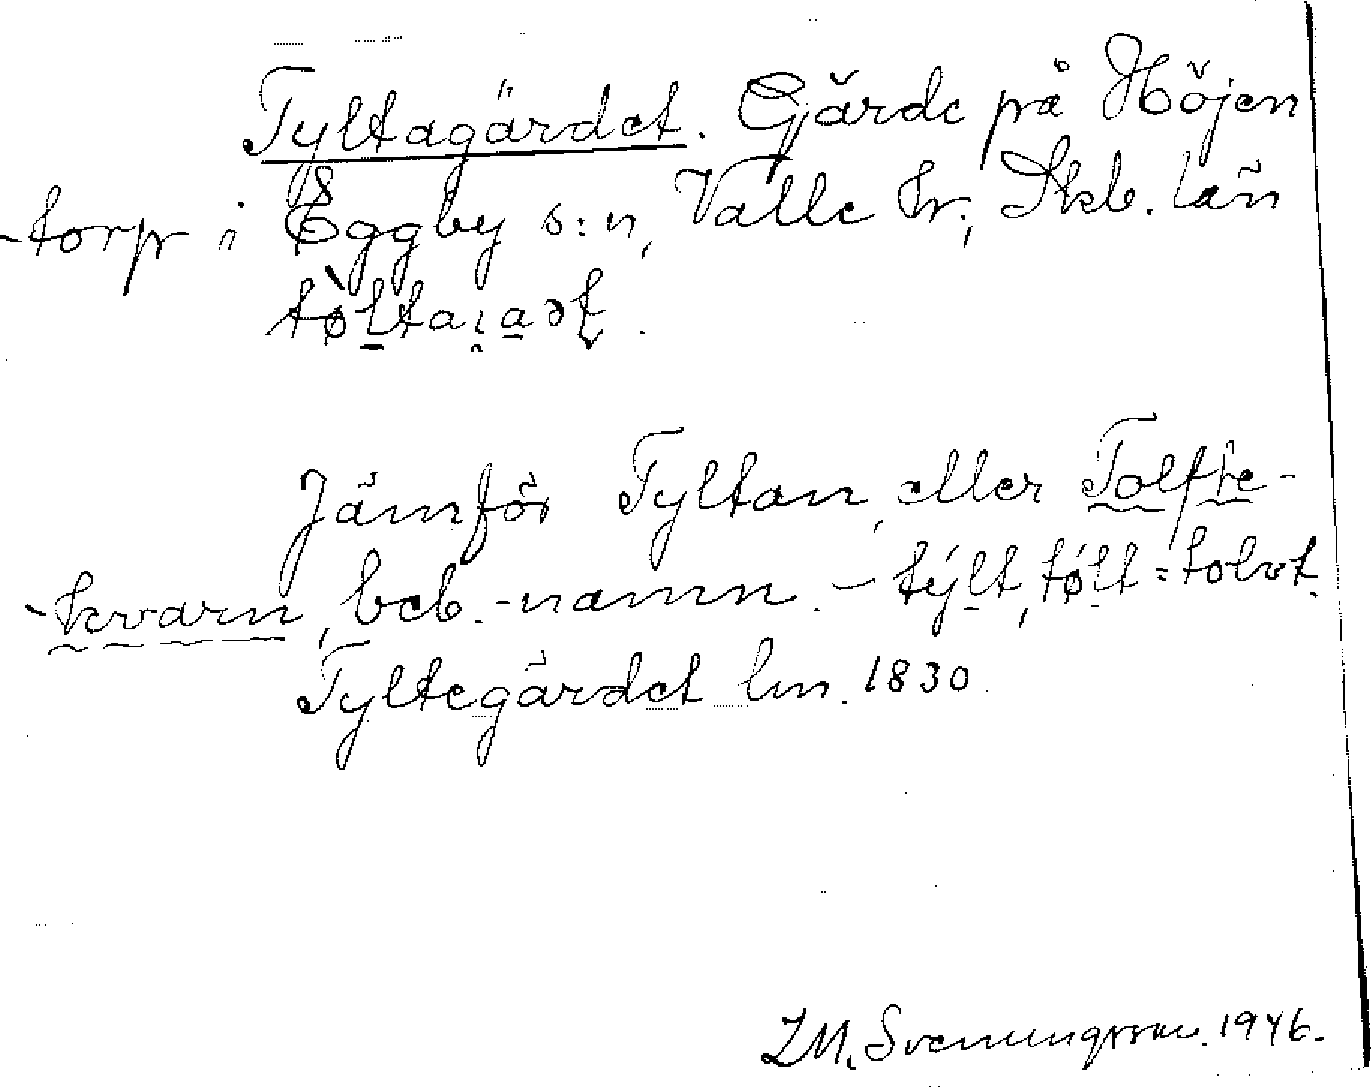 Tyltagärdet. Gärde på Höjen
-torp i Eggby s:n, Valle hr, Skb. län
tø̀ltaɿadt.
Jämför Tyltan, eller Tolfte-
-kvarn, beb.-namn. - týlt, tǿlt = tolvt.
Tyltegärdet lm. 1830.
I.M. Svenungsson. 1946.